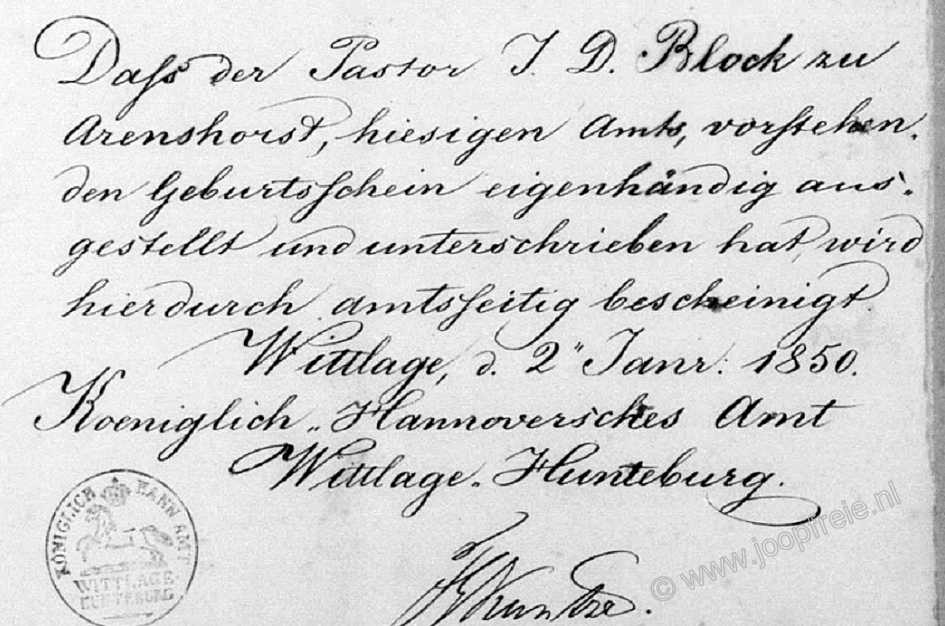 Daſs der Pastor J. D. Block zu
Arenshorst, hiesigen Amts, vorſtehen.
den Geburtsſchein eigenhändig aus.
gestellt und unterschrieben hat, wird
hierdurch amtsſeitig bescheinigt.
Wittlage, d. 2" Janr: 1850.
Koeniglich " Hannoversches Amt
Wittlage " Hunteburg.
KÖNIGLICH HANN AMT
WITTLAGE
HUNTEBURG
© www.joopfreie.nl